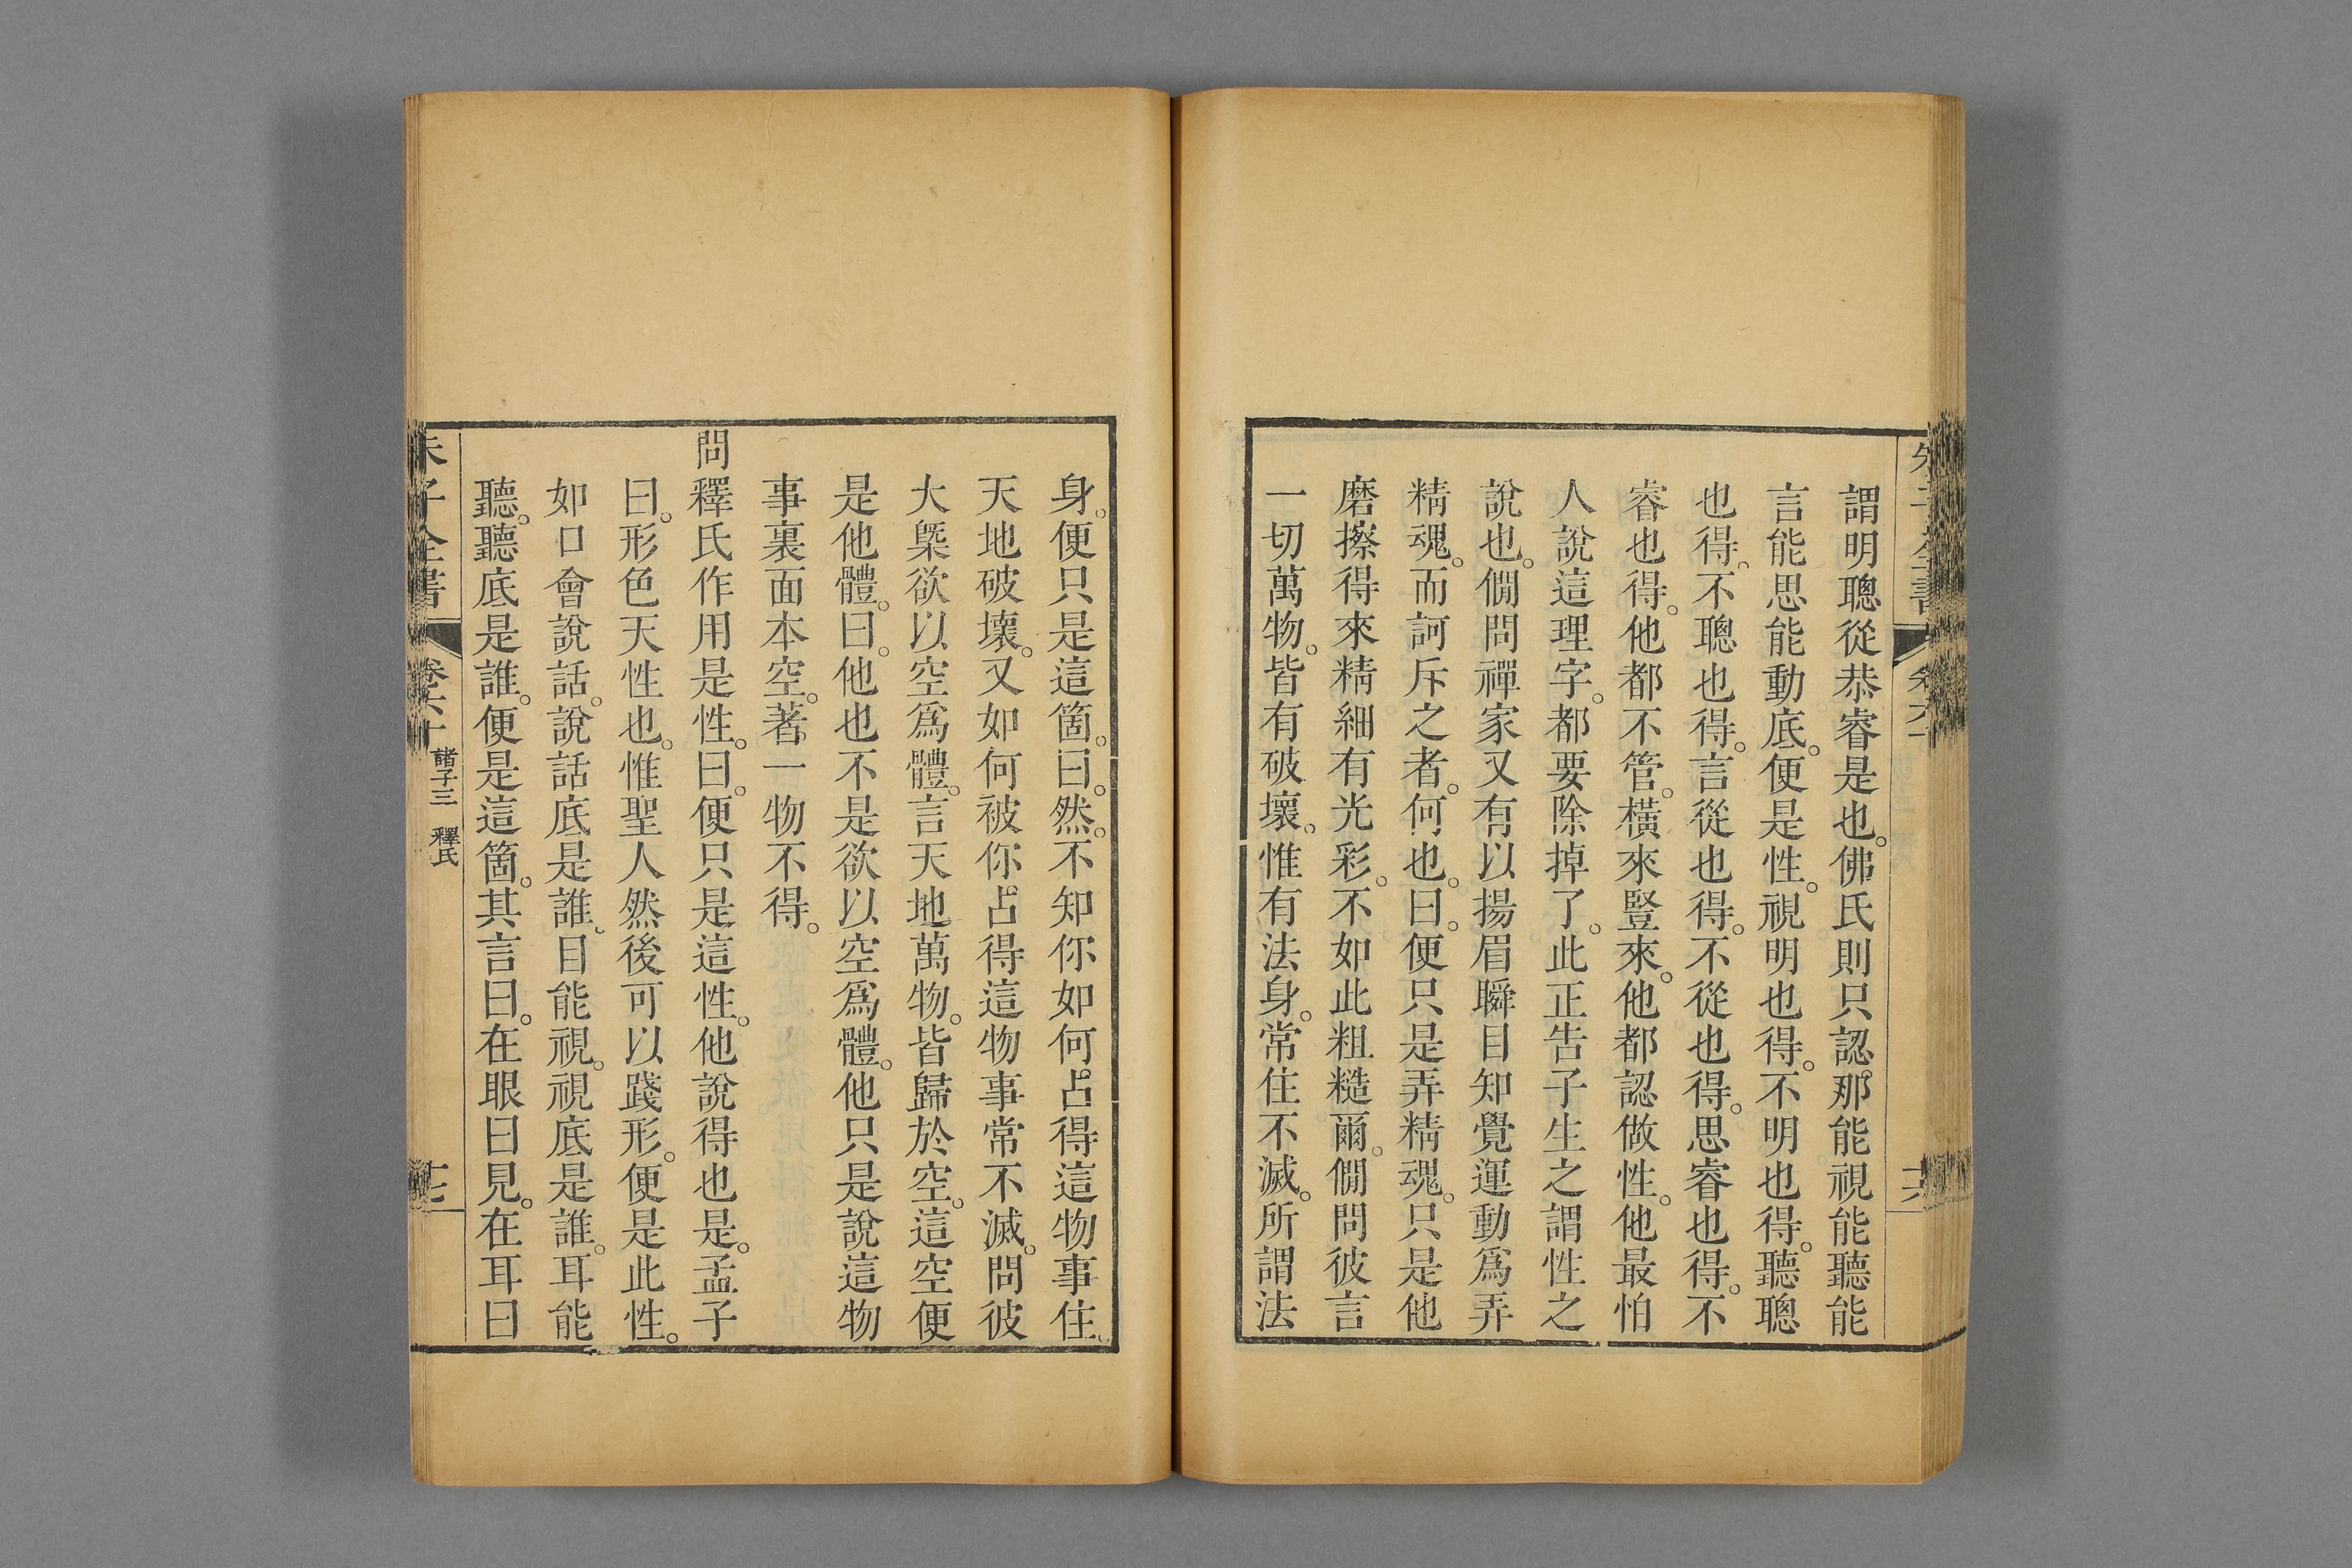 謂明聰從恭睿是也。佛氏則只認。那能視能聽能
言能思能動底。便是性。視明也得。不明也得。聽聰
也得。不聰也得。言從也得。不從也得。思睿也得。不
睿也得。他都不管。橫來豎來。他都認做性。他最怕
人說這理字。都要除掉了。此正告子生之謂性之
說也。僩問禪家又有以揚眉瞬目知覺運動爲弄
精魂。而訶斥之者。何也。曰。便只是弄精魂。只是他
磨擦得來精細有光彩。不如此粗糙爾。僩問彼言
一切萬物。皆有破壞。惟有法身。常住不滅。所謂法
身。便只是這箇。曰。然。不知你如何占得這物事住。
天地破壞。又如何被你占得這物事常不滅。問彼
大槩欲以空爲體。言天地萬物。皆歸於空。這空便
是他體。曰。他也不是欲以空爲體。他只是說這物
事裏面本空。著一物不得。
問釋氏作用是性。曰。便只是這性。他說得也是。孟子
曰。形色天性也。惟聖人然後可以踐形。便是此性。
如口會說話。說話底是誰。目能視。視底是誰。耳能
聽。聽底是誰。便是這箇。其言曰。在眼曰見。在耳曰
朱子全書 卷六十 諸子三 釋氏 十七